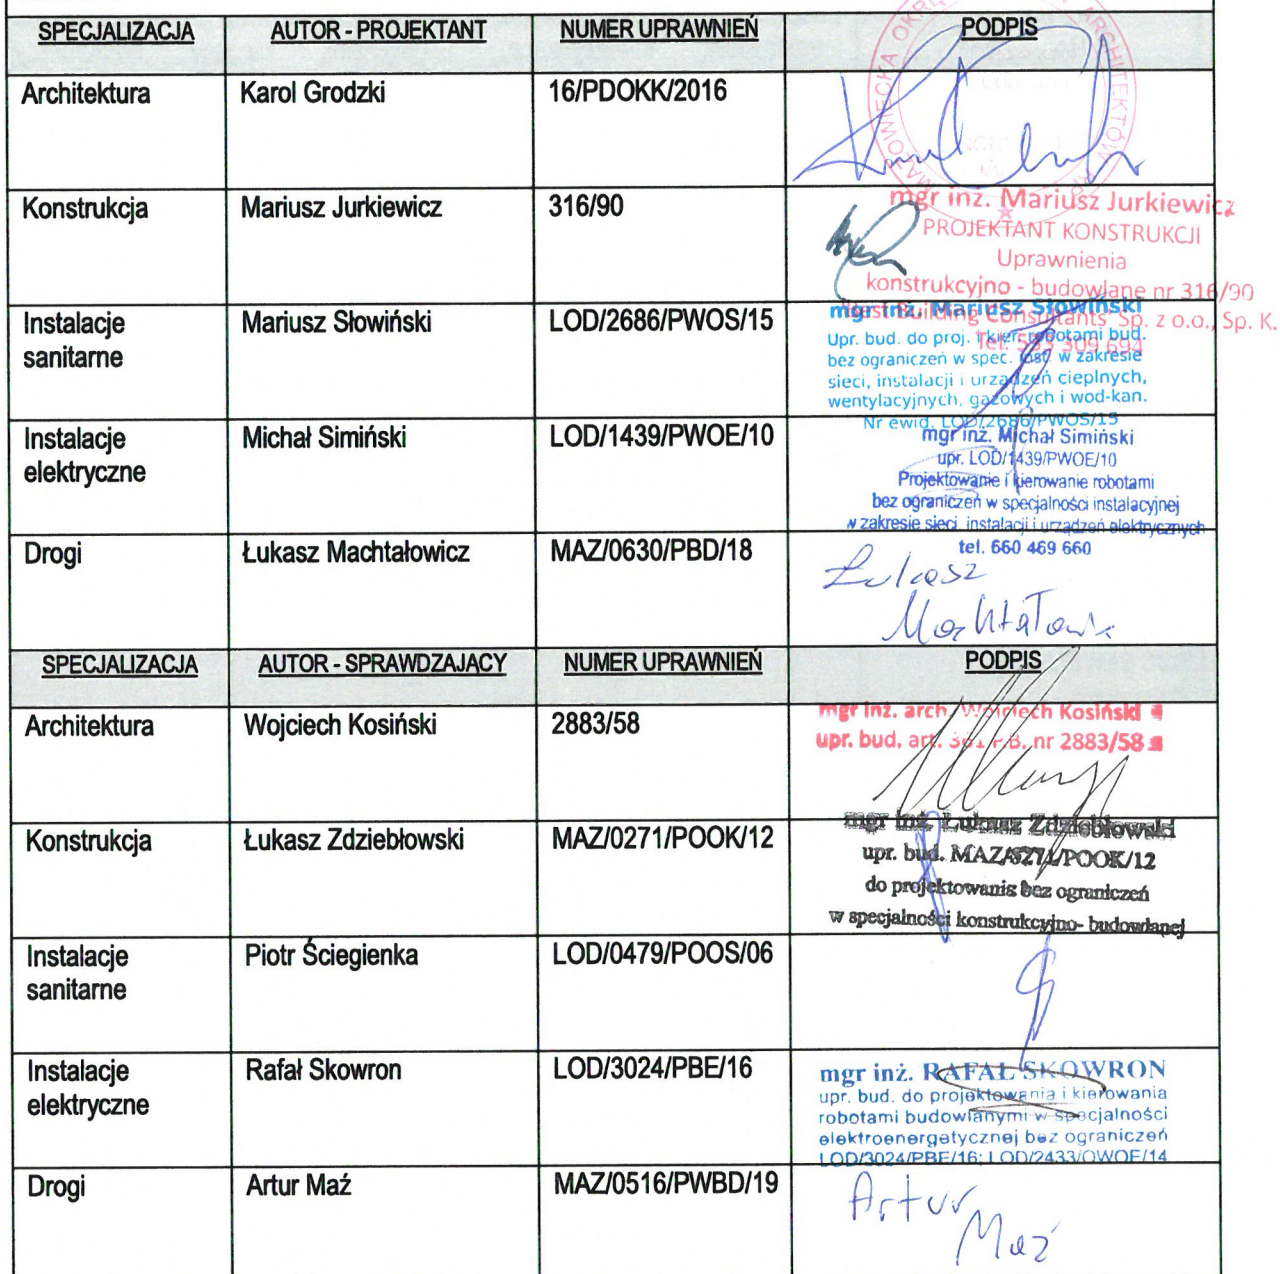 SPECJALIZACJA AUTOR - PROJEKTANT NUMER UPRAWNIEŃ PODPIS
Architektura Karol Grodzki 16/PDOKK/2016
MAZOWIECKA OKRĘ ARCHITEKTÓW RP
Konstrukcja Mariusz Jurkiewicz 316/90
mgr inż. Mariusz Jurkiewicz
PROJEKTANT KONSTRUKCJI
Uprawnienia
konstrukcyjno - budowlane nr 316/90
Best Building Consultants Sp. z o.o., Sp. K.
Tel. 533 309 694
Instalacje sanitarne Mariusz Słowiński LOD/2686/PWOS/15
mgr inż. Mariusz Słowiński
Upr. bud. do proj. i kier. robotami bud.
bez ograniczeń w spec. inst. w zakresie
sieci, instalacji i urządzeń cieplnych,
wentylacyjnych, gazowych i wod-kan.
Nr ewid. LOD/2686/PWOS/15
Instalacje elektryczne Michał Simiński LOD/1439/PWOE/10
mgr inż. Michał Simiński
upr. LOD/1439/PWOE/10
Projektowanie i kierowanie robotami
bez ograniczeń w specjalności instalacyjnej
w zakresie sieci instalacji i urządzeń elektrycznych
tel. 660 469 660
Drogi Łukasz Machtałowicz MAZ/0630/PBD/18
Łukasz
SPECJALIZACJA AUTOR - SPRAWDZAJĄCY NUMER UPRAWNIEŃ PODPIS
Architektura Wojciech Kosiński 2883/58
mgr inż. arch. Wojciech Kosiński
upr. bud. art. 361 P.B. nr 2883/58
Konstrukcja Łukasz Zdziebłowski MAZ/0271/POOK/12
mgr inż. Łukasz Zdziebłowski
upr. bud. MAZ/0271/POOK/12
do projektowania bez ograniczeń
w specjalności konstrukcyjno- budowlanej
Instalacje sanitarne Piotr Ściegienka LOD/0479/POOS/06
Instalacje elektryczne Rafał Skowron LOD/3024/PBE/16
mgr inż. RAFAŁ SKOWRON
upr. bud. do projektowania i kierowania
robotami budowlanymi w specjalności
elektroenergetycznej bez ograniczeń
LOD/3024/PBE/16; LOD/2433/OWOE/14
Drogi Artur Maź MAZ/0516/PWBD/19
Artur
Maź